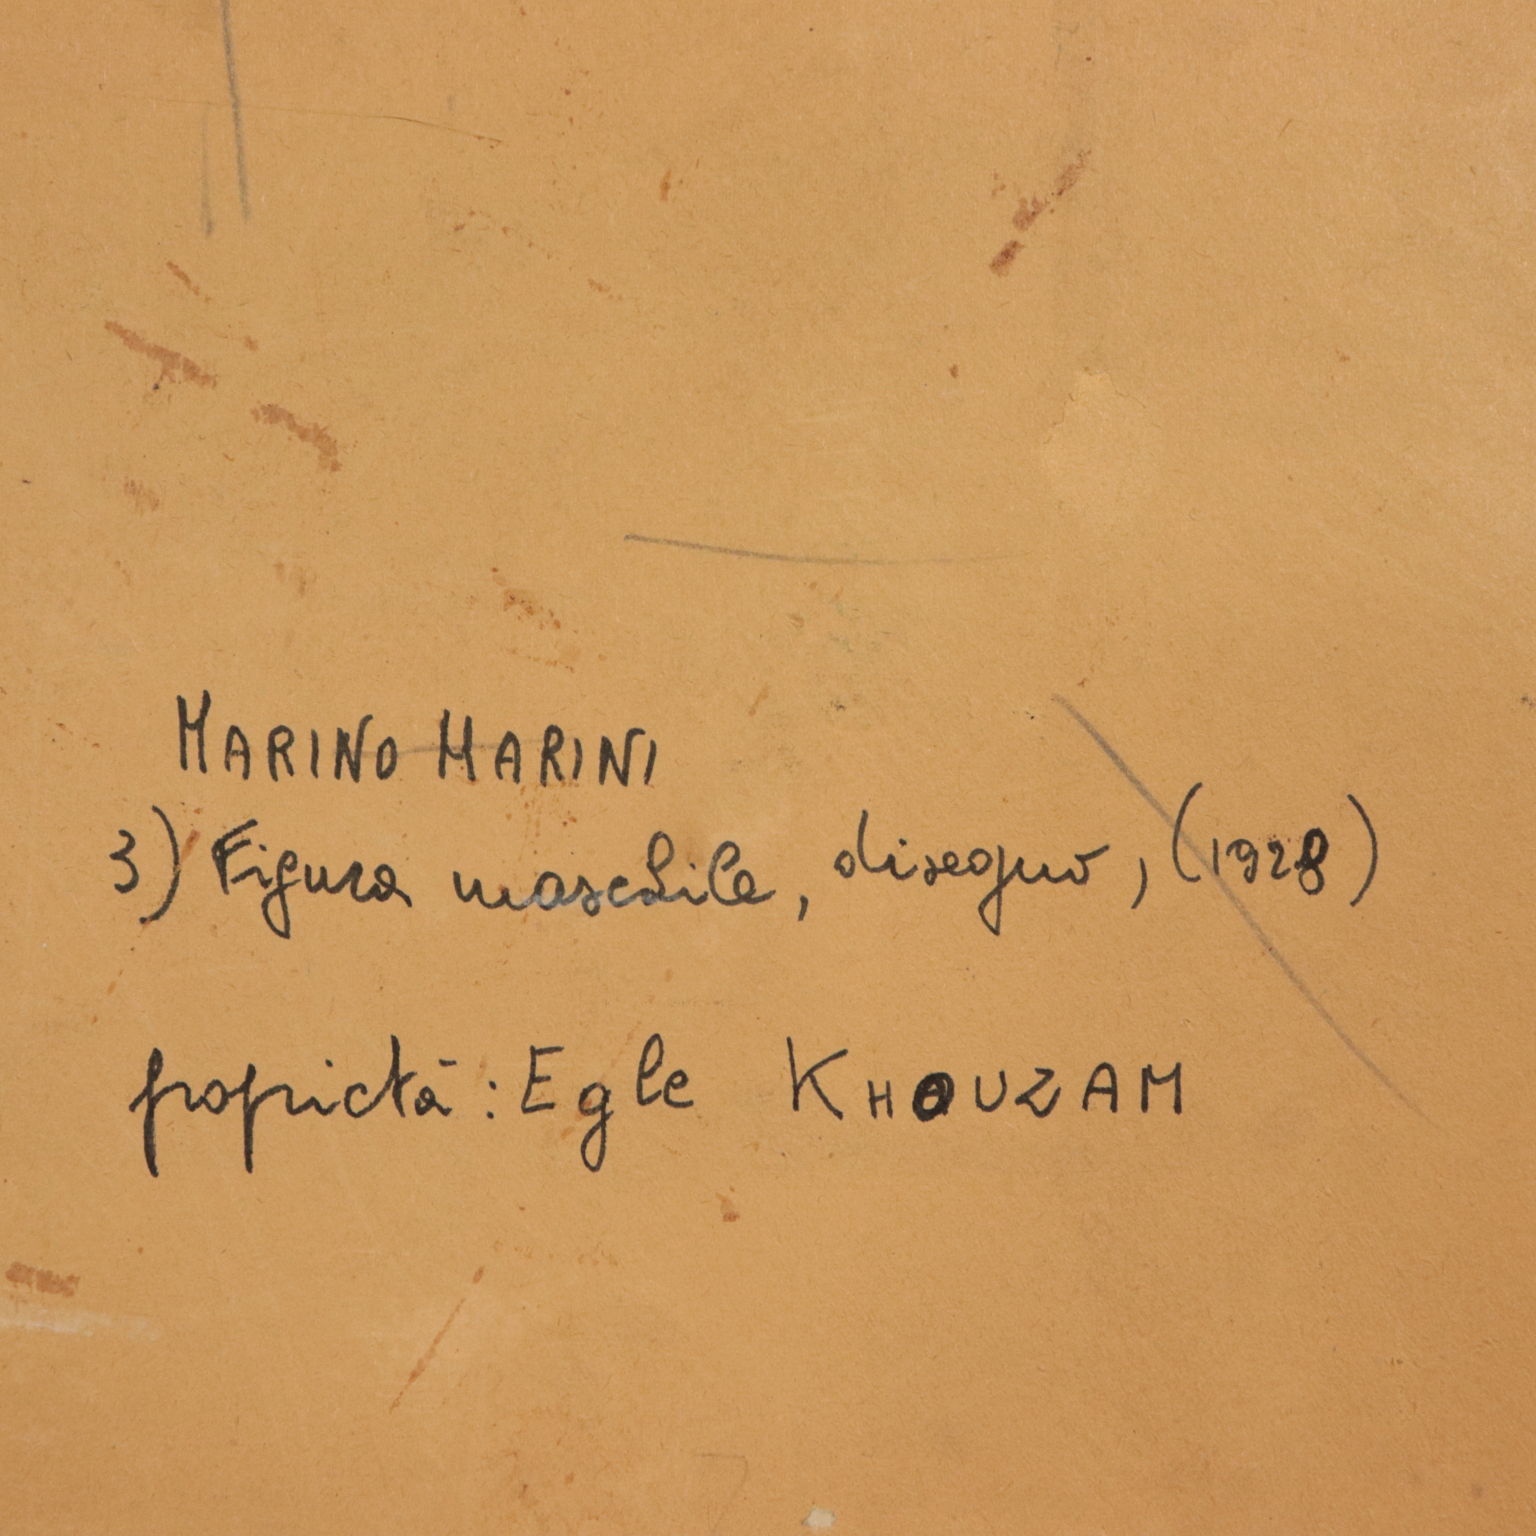 MARINO MARINI
3) Figura maschile, disegno, (1928)
propietà: Egle KHOUZAM